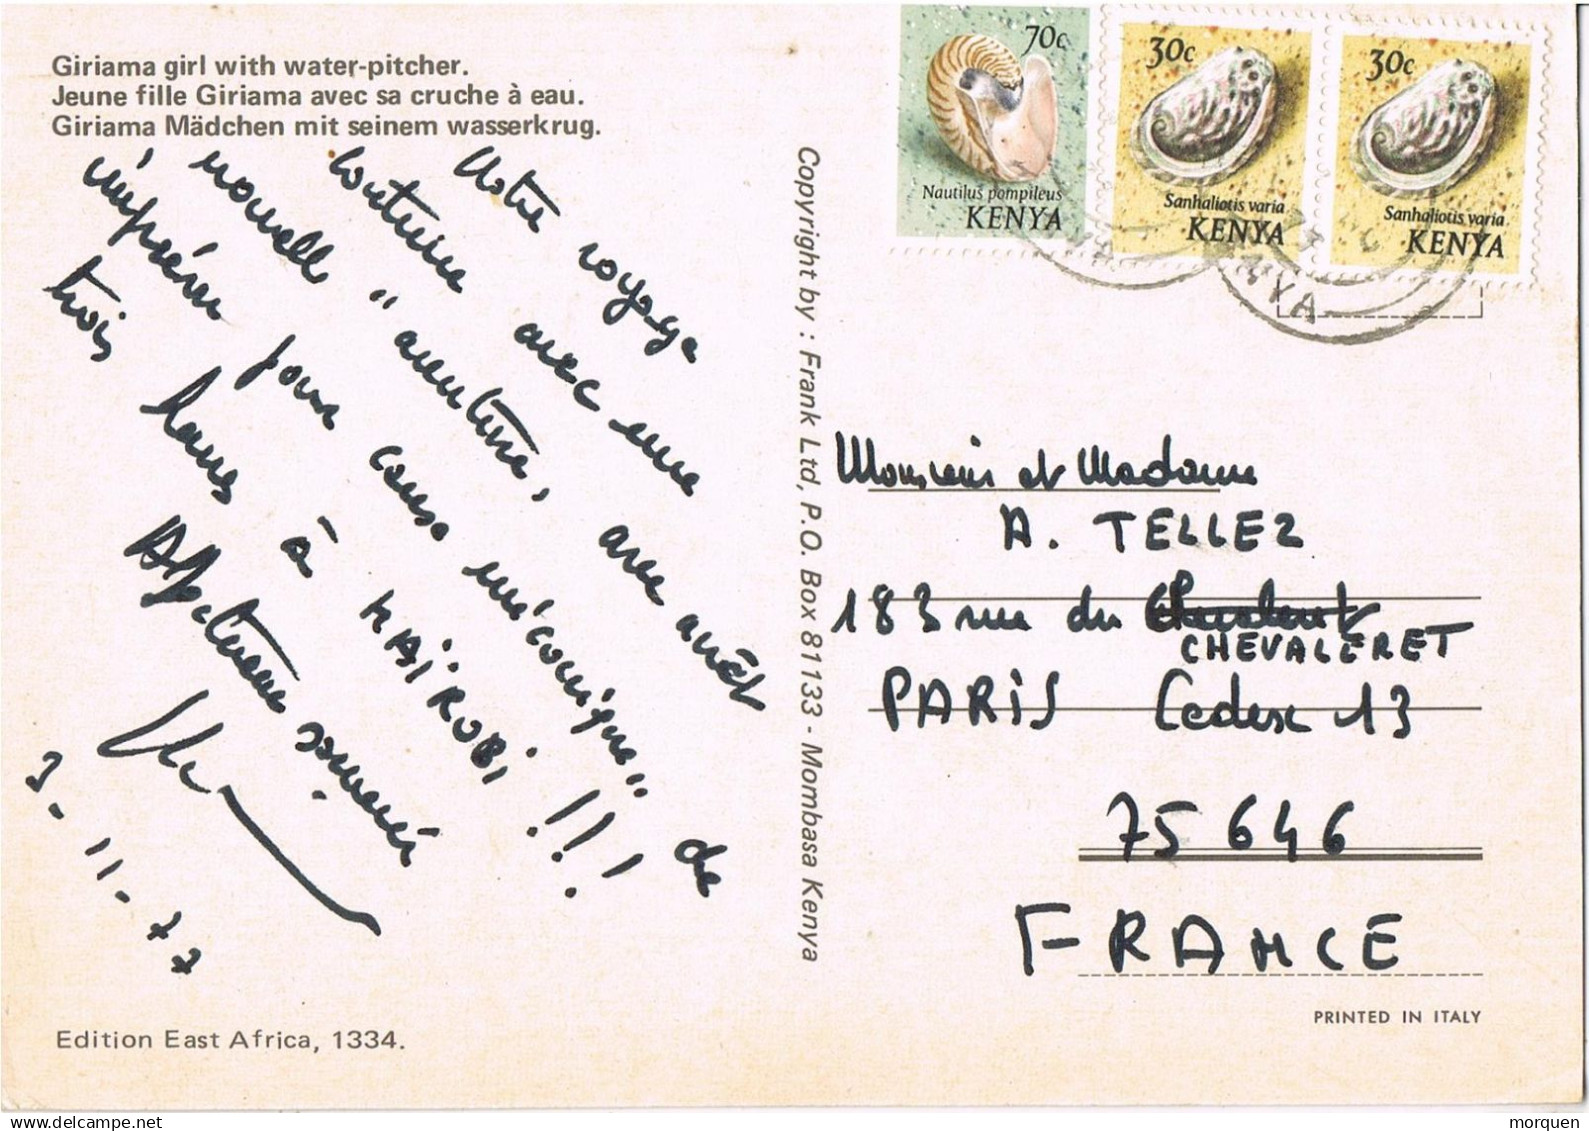 Giriama girl with water-pitcher.
Jeune fille Giriama avec sa cruche à eau.
Giriama Mädchen mit seinem wasserkrug.
Notre voyage
continue avec une
nouvelle " aventure, avec arrêt
imprévu pour cause mécanique" de
trois heures à NAÏROBI !!!
Affectueux souvenir
3-11-77
Edition East Africa, 1334.
Copyright by : Frank Ltd, P.O. Box 81133 - Mombasa Kenya
70c
Nautilus pompileus
KENYA
30c
Sanhaliotis varia
KENYA
30c
Sanhaliotis varia
KENYA
Monsieur et Madame
A. TELLEZ
183 rue du
CHEVALERET
PARIS Cedex 13
75646
FRANCE
PRINTED IN ITALY
morquen